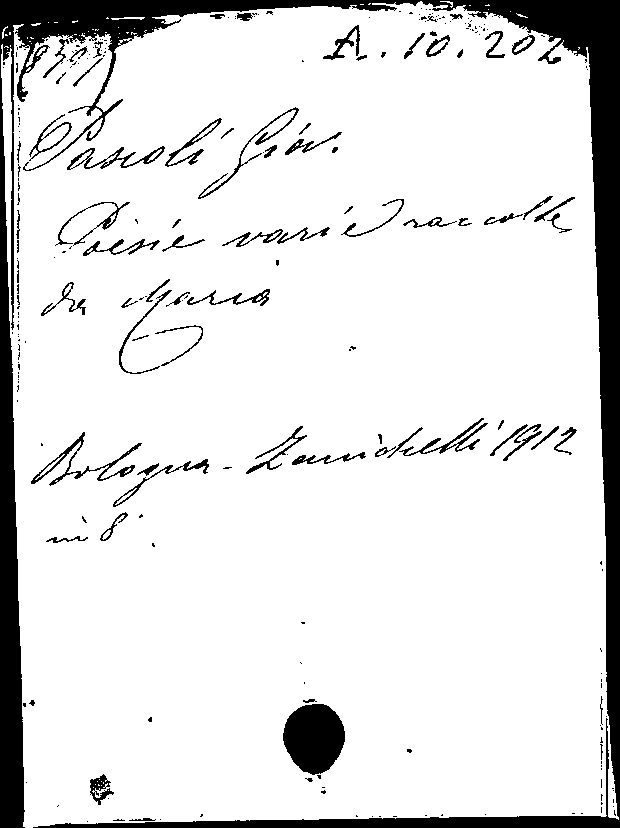 A. 10. 202
Pascoli Giov.
Poesie varie raccolte
da Maria
Bologna - Zanichelli 1912
in 8°